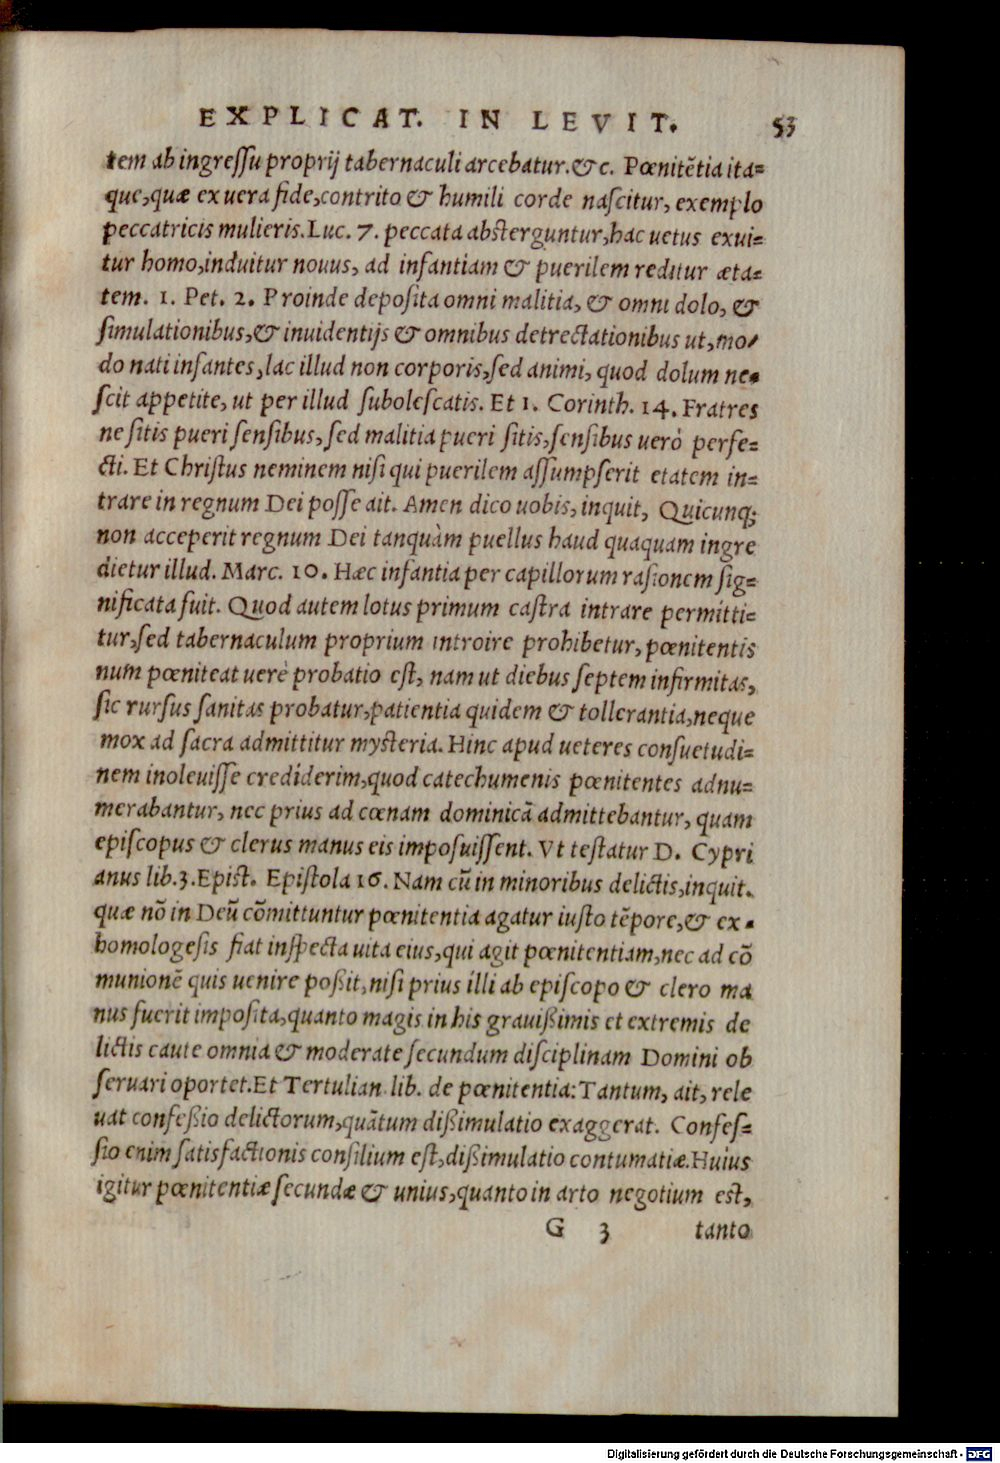 EXPLICAT. IN LEVIT. 53
tem ab ingreſſu proprij tabernaculi arcebatur.&c. Pœnitẽtia ita=
que,quæ ex uera fide,contrito & humili corde naſcitur, exemplo
peccatricis mulieris.Luc. 7. peccata abſterguntur,hac uetus exui=
tur homo,induitur nouus, ad infantiam & puerilem reditur æta=
tem. 1. Pet. 2. Proinde depoſita omni malitia, & omni dolo, &
ſimulationibus,& inuidentijs & omnibus detrectationibus ut,mo/
do nati infantes,lac illud non corporis,ſed animi, quod dolum ne=
ſcit appetite, ut per illud ſuboleſcatis. Et 1. Corinth. 14. Fratres
ne ſitis pueri ſenſibus, ſed malitia pueri ſitis,ſenſibus uerò perfe=
cti. Et Chriſtus neminem niſi qui puerilem aſſumpſerit etatem in=
trare in regnum Dei poſſe ait. Amen dico uobis, inquit, Quicunq;
non acceperit regnum Dei tanquàm puellus haud quaquam ingre
dietur illud. Marc. 10. Hæc infantia per capillorum raſionem ſig=
nificata fuit. Quod autem lotus primum caſtra intrare permitti=
tur,ſed tabernaculum proprium introire prohibetur, pœnitentis
num pœniteat uerè probatio eſt, nam ut diebus ſeptem infirmitas,
ſic rurſus ſanitas probatur,patientia quidem & tollerantia,neque
mox ad ſacra admittitur myſteria. Hinc apud ueteres conſuetudi=
nem inoleuiſſe crediderim,quod catechumenis pœnitentes adnu=
merabantur, nec prius ad cœnam dominicã admittebantur, quam
epiſcopus & clerus manus eis impoſuiſſent. Vt teſtatur D. Cypri
anus lib.3.Epiſt. Epiſtola 16. Nam cũ in minoribus delictis,inquit.
quæ nõ in Deũ cõmittuntur pœnitentia agatur iuſto tẽpore,& ex=
homologeſis fiat inſpecta uita eius,qui agit pœnitentiam,nec ad cõ
munionẽ quis uenire poßit,niſi prius illi ab epiſcopo & clero ma
nus fuerit impoſita,quanto magis in his grauißimis et extremis de
lictis caute omnia & moderate ſecundum diſciplinam Domini ob
ſeruari oportet.Et Tertulian lib. de pœnitentia:Tantum, ait, rele
uat confeßio delictorum,quãtum dißimulatio exaggerat. Confeſ=
ſio enim ſatisfactionis conſilium eſt,dißimulatio contumatiæ.Huius
igitur pœnitentiæ ſecundæ & unius,quanto in arto negotium eſt,
G 3 tanto
Digitalisierung gefördert durch die Deutsche Forschungsgemeinschaft - DFG